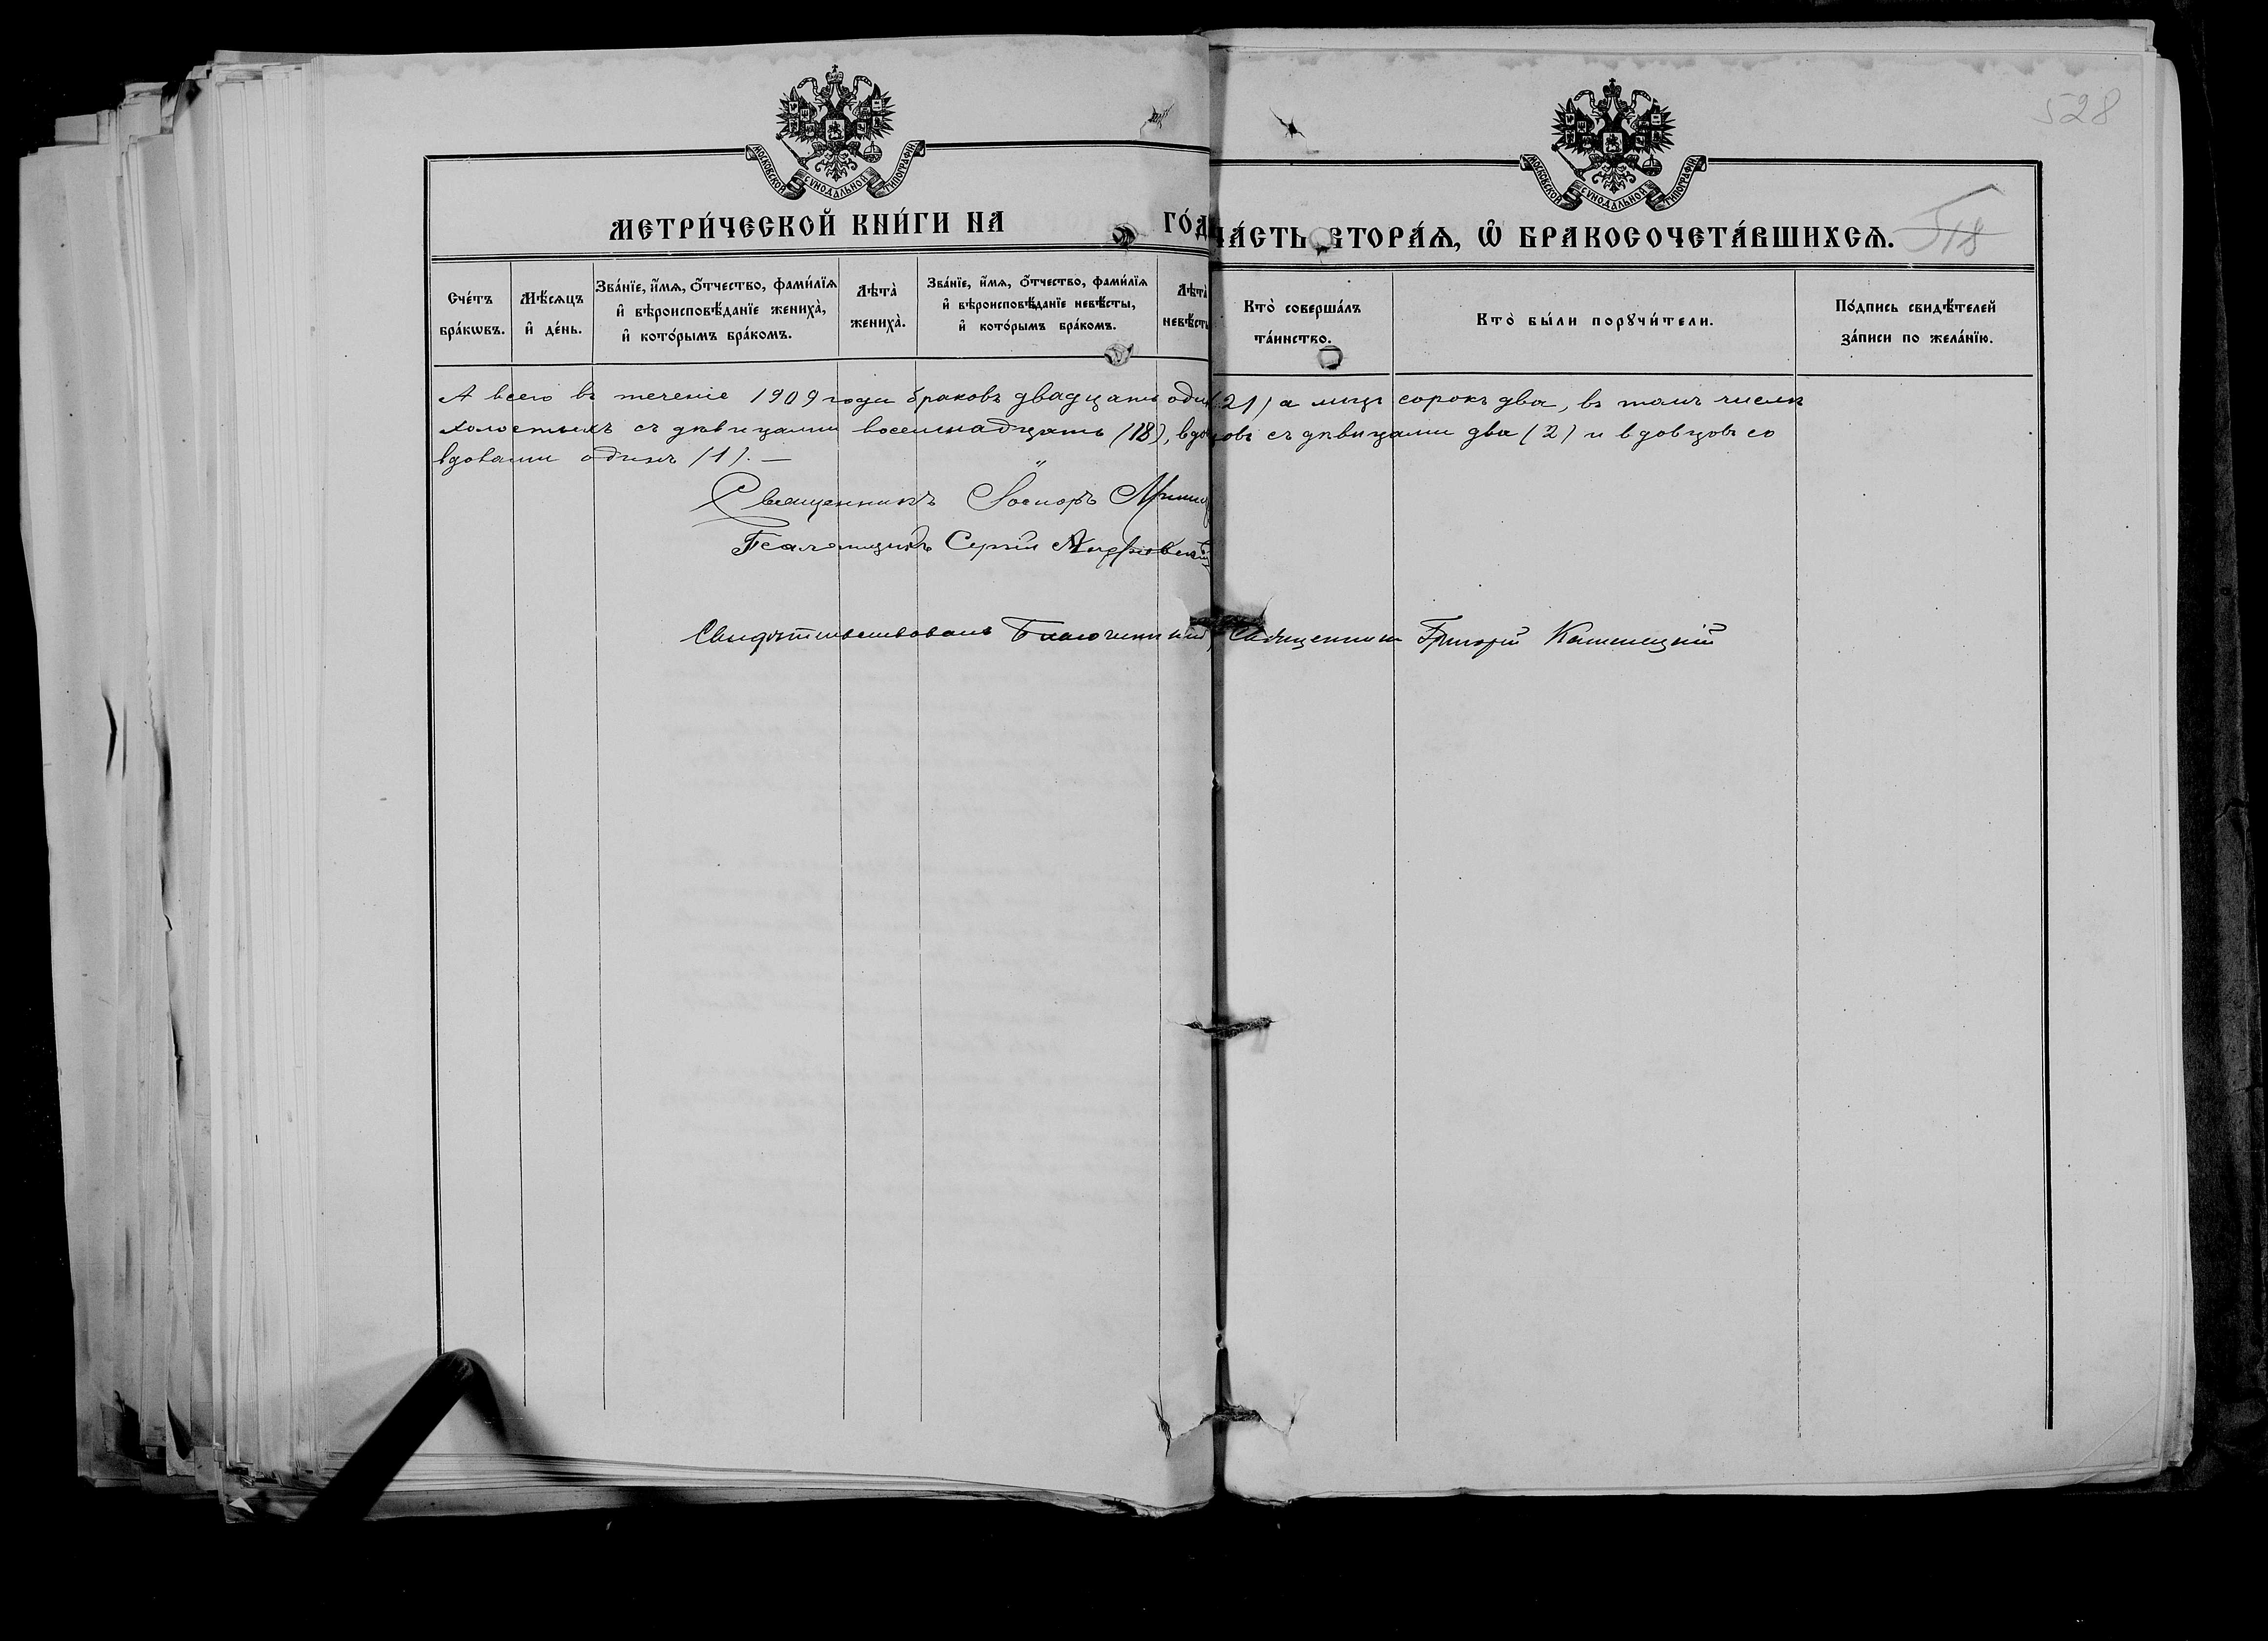 528
МОСКОВСКОЙ СѴНОДАЛЬНОЙ ТИПОГРАФІИ
МОСКОВСКОЙ СѴНОДАЛЬНОЙ ТИПОГРАФІИ
518
МЕТРИ́ЧЕСКОЙ КНИ́ГИ НА ГО́Д
ЧА́СТЬ ВТОРА́Ѧ, Ѡ҆ БРАКОСОЧЕТА́ВШИХСѦ.
Сче́тъ бра́кѡвъ.
Мѣ́сѧцъ и҆ де́нь.
Зва́нїе, и҆́мѧ, ѻ҆́тчество, фами́лїѧ и҆ вѣроисповѣ́данїе жениха̀, и҆ кото́рымъ бра́комъ.
Лѣта̀ жениха̀.
Зва́нїе, и҆́мѧ, ѻ҆́тчество, фами́лїѧ и҆ вѣроисповѣ́данїе невѣ́сты, и҆ кото́рымъ бра́комъ.
Лѣта̀ невѣ́сты
Кто̀ соверша́лъ та́инство.
Кто̀ бы́ли порꙋчи́тели.
По́дпись свидѣ́телей за́писи по жела́нїю.
А всего въ теченіе 1909 года браковъ двадцать один (21) а лицъ сорокъ два, въ томъ числѣ
холостыхъ съ дѣвицами восемнадцать (18), вдовцовъ съ дѣвицами два (2) и вдовцовъ со
вдовами одинъ (1). —
Священникъ Іосифъ
Псаломщикъ Сергій
Свидѣтельствовалъ Благочинный, Священникъ Григорій Каминецкій